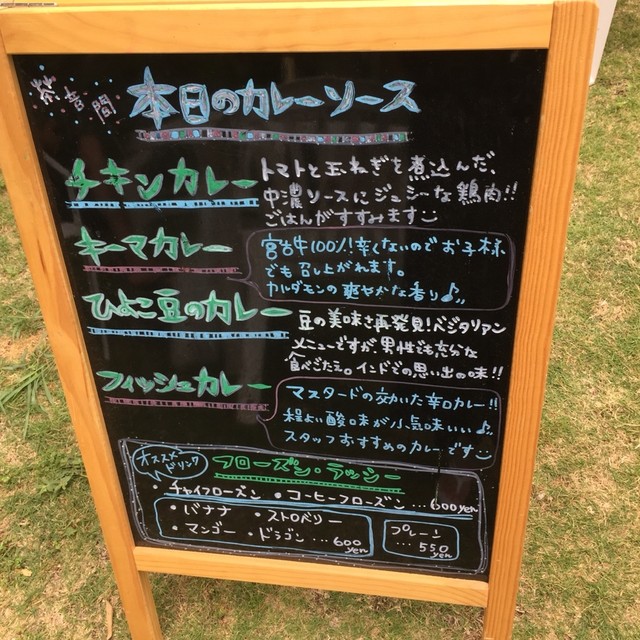 茶音間
本日のカレーソース
チキンカレー
トマトと玉ねぎを煮込んだ、
中濃ソースにジューシーな鶏肉!!
ごはんがすすみます
キーマカレー
宮古牛100%!辛くないのでお子様
でも召し上がれます。
カルダモンの爽やかな香り♪
ひよこ豆のカレー
豆の美味さ再発見!ベジタリアン
メニューですが、男性でも充分な
食べごたえ。インドでの思い出の味!!
フィッシュカレー
マスタードの効いた辛口カレー!!
程よい酸味が小気味いい♪
スタッフおすすめのカレーです
オススメ
ドリンク
フローズン・ラッシー
・チャイフローズン ・コーヒーフローズン...600yen
・バナナ ・ストロベリー
・マンゴー ・ドラゴン...600yen
プレーン
...550yen